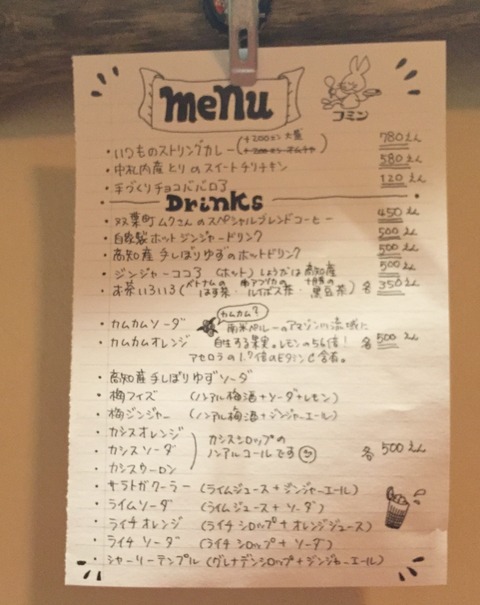 menu
コミン
・いつものストリングカレー(+200エン 大盛) 780えん
・中札内産とりのスイートチリチキン 580えん
・手づくりチョコババロア 120えん
Drinks
・双葉町ムクさんのスペシャルブレンドコーヒー 450えん
・自家製ホットジンジャードリンク 500えん
・高知産手しぼりゆずのホットドリンク 500えん
・ジンジャーココア(ホット)しょうがは高知産 500えん
・お茶いろいろ(ベトナムのはす茶・南アフリカのルイボス茶・十勝の黒豆茶) 各350えん
カムカム?
・カムカムソーダ 南米ペルーのアマゾン川流域に
・カムカムオレンジ 自生する果実。レモンの56倍! 各500えん
アセロラの1.7倍のビタミンC含有。
・高知産手しぼりゆずソーダ
・梅フィズ (ノンアル梅酒+ソーダ+レモン)
・梅ジンジャー (ノンアル梅酒+ジンジャーエール)
・カシスオレンジ
・カシスソーダ カシスシロップのノンアルコールです 各500えん
・カシスウーロン
・サラトガクーラー (ライムジュース+ジンジャーエール)
・ライムソーダ (ライムジュース+ソーダ)
・ライチオレンジ (ライチシロップ+オレンジジュース)
・ライチソーダ (ライチシロップ+ソーダ)
・シャーリーテンプル (グレナデンシロップ+ジンジャーエール)